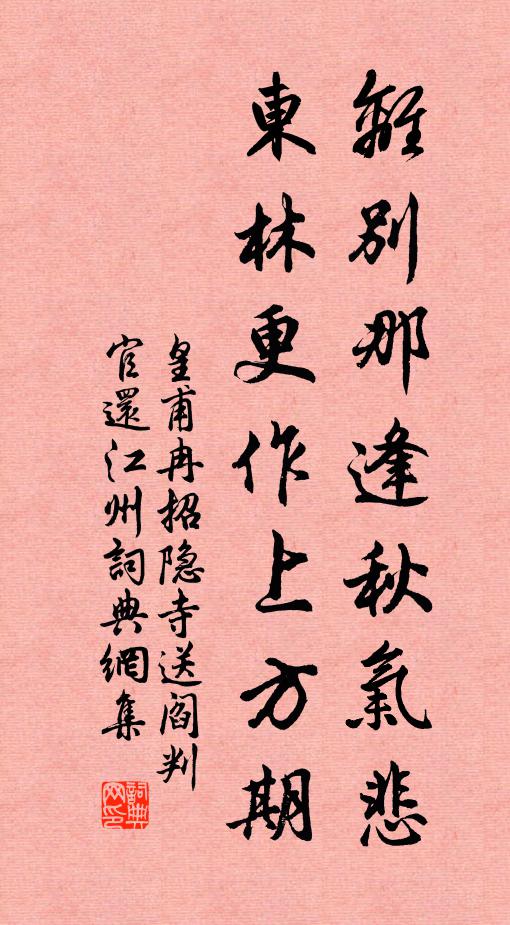 離別那逢秋氣悲
東林更作上方期
皇甫冉招隐寺送閻判
官還江州詞典網集
詞典
网印